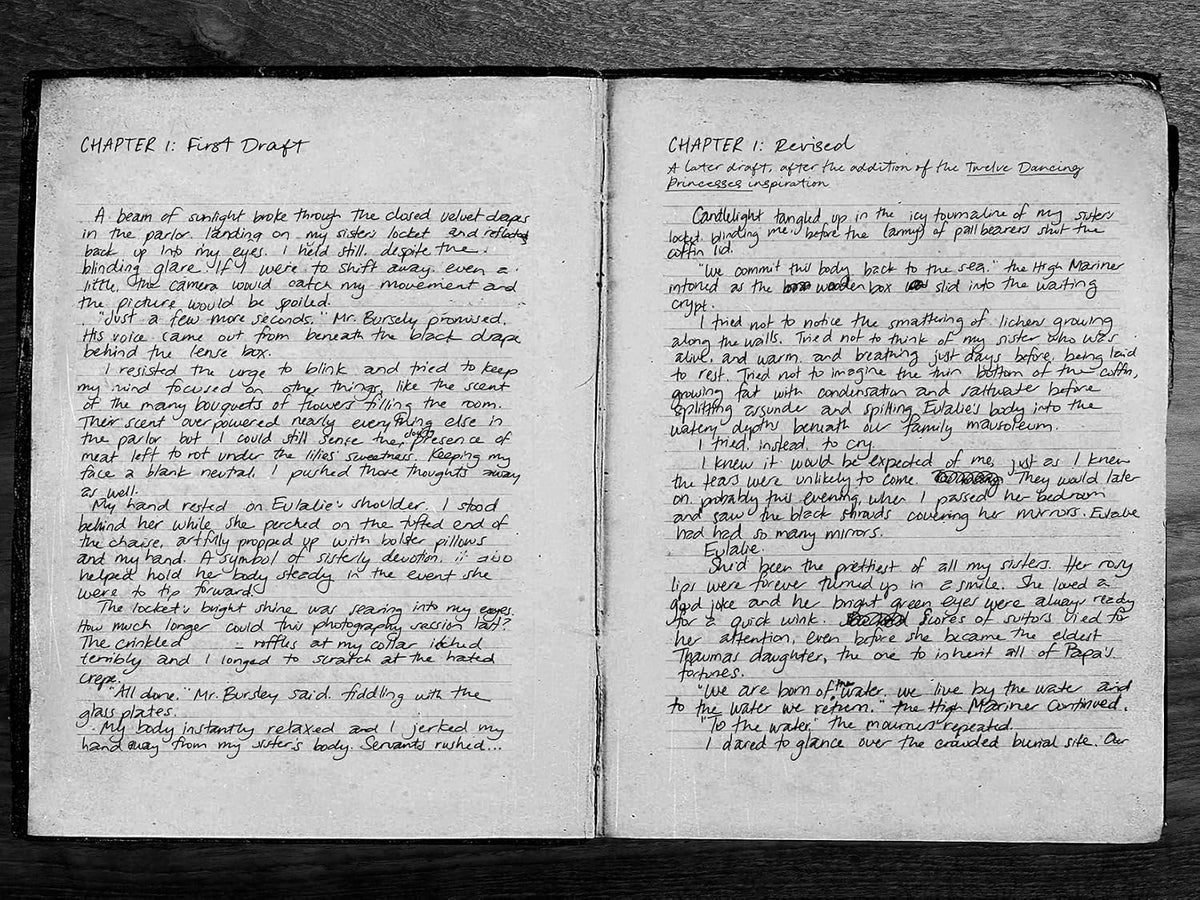 CHAPTER 1: First Draft
A beam of sunlight broke through the closed velvet drapes
in the parlor. landing on my sister's locket and reflecting
back up into my eyes. I held still. despite the
blinding glare. If I were to shift away. even a
little, the camera would catch my movement and
the picture would be spoiled.
"Just a few more seconds." Mr. Bursely promised.
His voice came out from beneath the black drape
behind the lense box.
I resisted the urge to blink and tried to keep
my mind focused on other things, like the scent
of the many bouquets of flowers filling the room.
Their scent overpowered nearly everything else in
the parlor but I could still sense the cloying presence of
meat left to rot under the lilies' sweetness. Keeping my
face a blank neutral. I pushed those thoughts away
as well.
My hand rested on Eulalie's shoulder. I stood
behind her while she perched on the tufted end of
the chaise, artfully propped up with bolster pillows
and my hand. A symbol of sisterly devotion, it also
helped hold her body steady in the event she
were to tip forward.
The locket's bright shine was searing into my eyes.
How much longer could this photography session last?
The crinkled ruffles at my collar itched
terribly and I longed to scratch at the hated
crepe.
"All done." Mr. Bursley said. fiddling with the
glass plates.
My body instantly relaxed and I jerked my
hand away from my sister's body. Servants rushed...
CHAPTER 1: Revised
A later draft, after the addition of the Twelve Dancing
Princesses inspiration
Candlelight tangled up in the icy tourmaline of my sister's
locket blinding me, before the (army) of pallbearers shut the
coffin lid.
"We commit this body back to the sea." the High Mariner
intoned as the wooden box was slid into the waiting
crypt.
I tried not to notice the smattering of lichen growing
along the walls. Tried not to think of my sister who was
alive, and warm, and breathing just days before, being laid
to rest. Tried not to imagine the thin bottom of the coffin,
growing fat with condensation and saltwater before
splitting asunder and spilling Eulalie's body into the
watery depths beneath our family mausoleum.
I tried, instead, to cry.
I knew it would be expected of me, just as I knew
the tears were unlikely to come. They would later
on, probably this evening, when I passed her bedroom
and saw the black shrouds covering her mirrors. Eulalie
had had so many mirrors.
Eulalie.
She'd been the prettiest of all my sisters. Her rosy
lips were forever turned up in a smile. She loved a
good joke and her bright green eyes were always ready
for a quick wink. Scores of suitors vied for
her attention, even before she became the eldest
Thaumas daughter, the one to inherit all of Papa's
fortunes.
"We are born of the water, we live by the water and
to the water we return." the High Mariner continued.
"To the water," the mourners repeated.
I dared to glance over the crowded burial site. Our